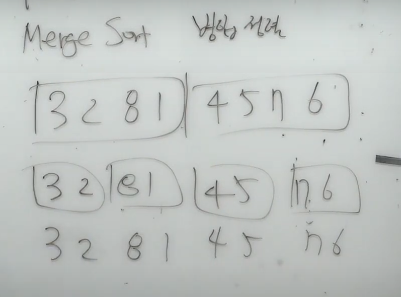 Merge Sort 병합 정렬
3 2 8 1 4 5 7 6
3 2 8 1 4 5 7 6
3 2 8 1 4 5 7 6